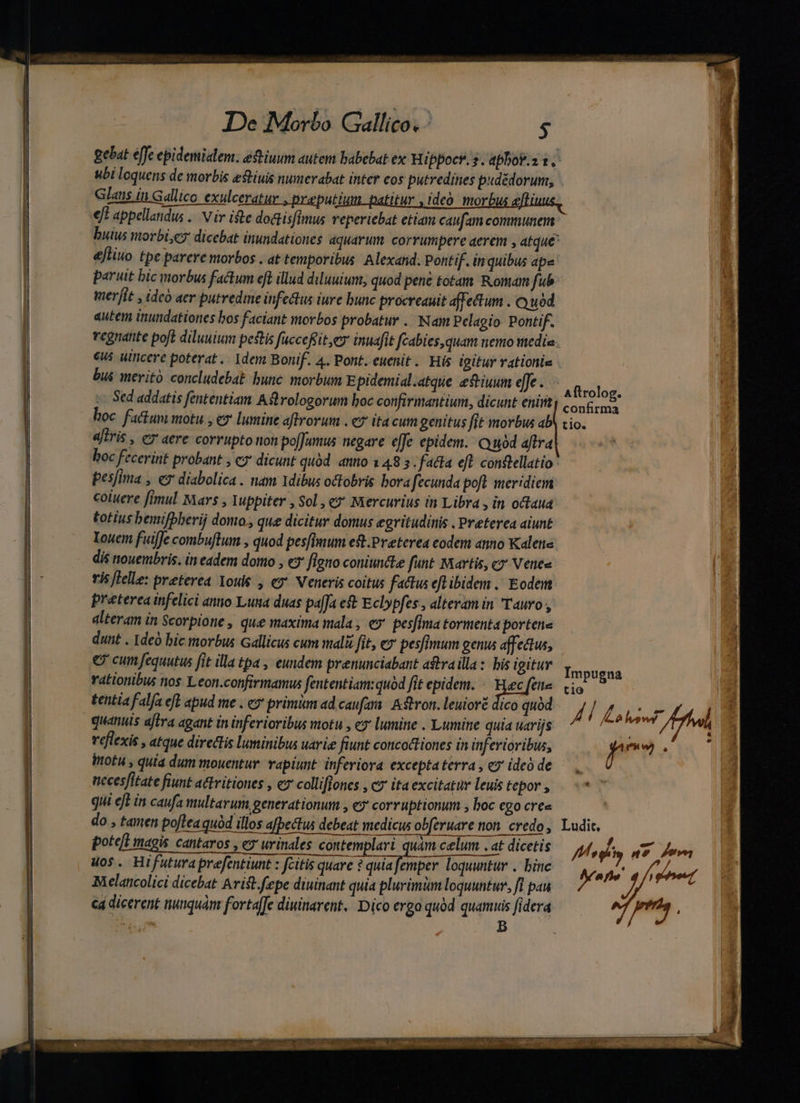 De Morbo Gallico. 5
gebat esse epidemialem. æstiuum autem habebat ex Hippocr. 3. aphor. 21,
ubi loquens de morbis æstiuis numerabat inter eos putredines pudẽdorum,
Glans in Gallico exulceratur, præputium patitur, ideò morbus æstiuus
est appellandus. Vir iste doctissimus reperiebat etiam causam communem
huius morbi, & dicebat inundationes aquarum corrumpere aerem, atque
æstiuo tpe parere morbos. at temporibus Alexand. Pontif. in quibus ap=
paruit hic morbus factum est illud diluuium, quod penè totam Romam sub
mersit, ideò aer putredine infectus iure hunc procreauit affectum. Quòd
autem inundationes hos faciant morbos probatur. Nam Pelagio Pontif.
regnante post diluuium pestis successit, & inuasit scabies, quam nemo medi=
cus uincere poterat. Idem Bonif. 4. Pont. euenit. His igitur rationi=
bus meritò concludebat hunc morbum Epidemial. atque æstiuum esse.
Sed addatis sententiam Astrologorum hoc confirmantium, dicunt enim
hoc factum motu, & lumine astrorum. & ita cum genitus sit morbus ab
astris, & aere corrupto non possumus negare esse epidem. Quòd astra
hoc fecerint probant, & dicunt quòd anno 1483. facta est constellatio
pessima, & diabolica. nam Idibus octobris hora secunda post meridiem
coiuere simul Mars, Iuppiter, Sol, & Mercurius in Libra, in octaua
totius hemispherij domo, quæ dicitur domus ægritudinis. Præterea aiunt
Iouem fuisse combustum, quod pessimum est. Præterea eodem anno Kalen=
dis nouembris. in eadem domo, & signo coniunctæ sunt Martis, & Vene=
ris stellæ: præterea Iouis, & Veneris coitus factus est ibidem. Eodem
præterea infelici anno Luna duas passa est Eclypses, alteram in Tauro,
alteram in Scorpione, quæ maxima mala, & pessima tormenta porten=
dunt. Ideò hic morbus Gallicus cum malũ sit, & pessimum genus affectus,
& cum sequutus sit illa tpa, eundem prænunciabant astra illa: his igitur
rationibus nos Leon. confirmamus sententiam: quòd sit epidem. Hæc sen=
tentia falsa est apud me. & primùm ad causam Astron. leuiorẽ dico quòd
quanuis astra agant in inferioribus motu, & lumine. Lumine quia uarijs
reflexis, atque directis luminibus uariæ fiunt concoctiones in inferioribus,
motu, quia dum mouentur rapiunt inferiora excepta terra, & ideò de
necessitate fiunt attritiones, & collisiones, & ita excitatur leuis tepor,
qui est in causa multarum generationum, & corruptionum, hoc ego cre=
do, tamen postea quòd illos aspectus debeat medicus obseruare non credo,
potest magis cantaros, & urinales contemplari quàm cælum. at dicetis
uos. Hi futura præsentiunt: scitis quare? quia semper loquuntur. hinc
Melancolici dicebat Arist. sæpe diuinant quia plurimùm loquuntur, si pau
ca dicerent nunquàm fortasse diuinarent. Dico ergo quòd quamuis sidera
B
Astrolog.
confirma
tio.
Impugna
tio
Ludit.